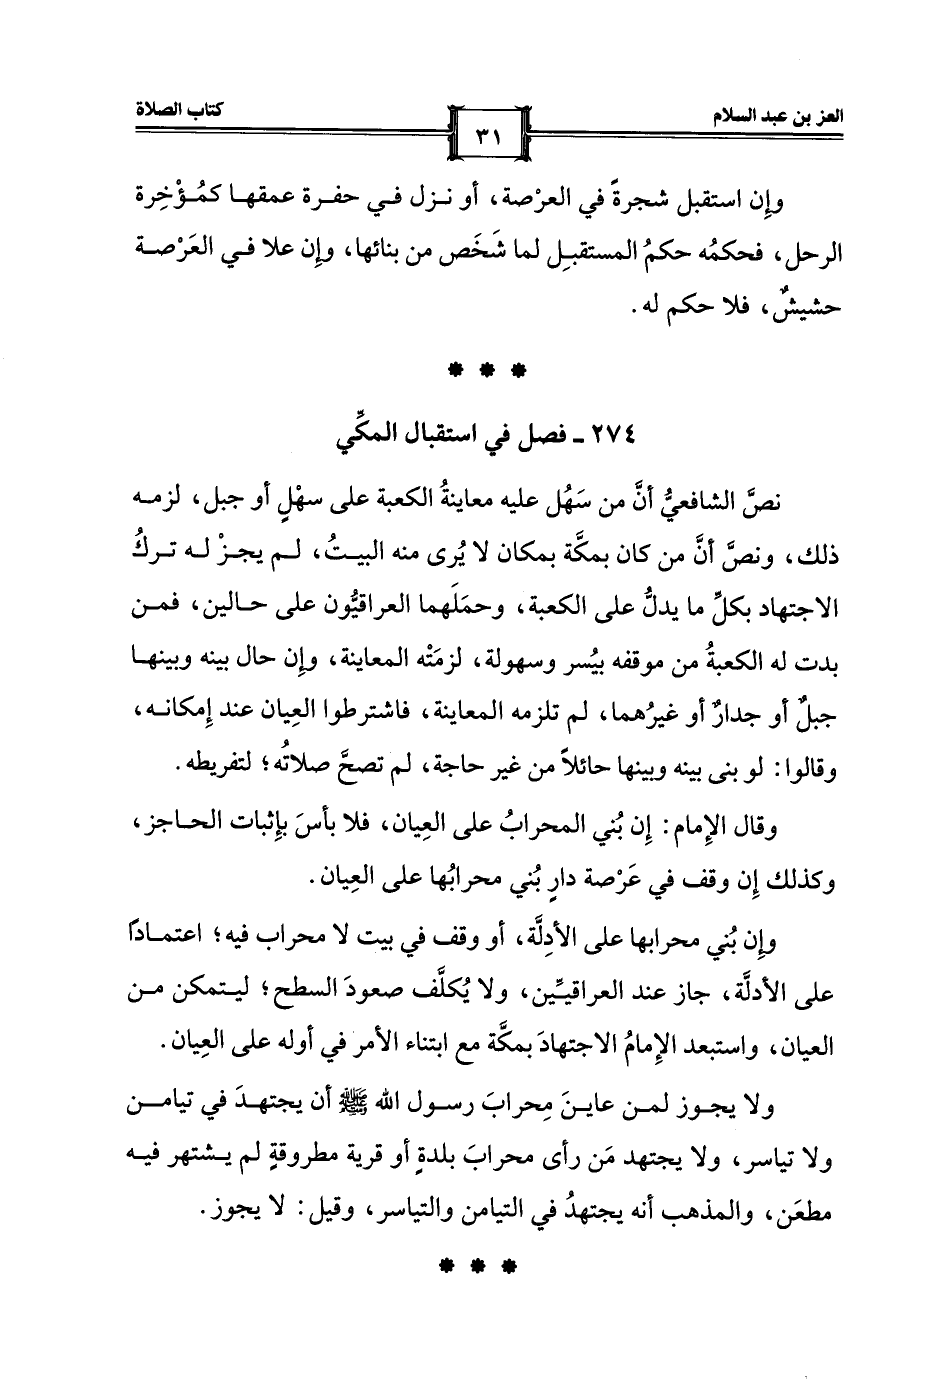 العز بن عبد السلام
٣١
كتاب الصلاة
وإن استقبل شجرةً في العرْصة، أو نزل في حفرة عمقها كمُؤْخِرة
الرحل، فحكمُه حكمُ المستقبِل لما شَخَص من بنائها، وإن علا في العَرْصة
حشيشٌ، فلا حكم له.
* * *
٢٧٤ ـ فصل في استقبال المكِّي
نصَّ الشافعيُّ أنَّ من سَهُل عليه معاينةُ الكعبة على سهْلٍ أو جبل، لزمه
ذلك، ونصَّ أنَّ من كان بمكَّة بمكان لا يُرى منه البيتُ، لم يجزْ له تركُ
الاجتهاد بكلِّ ما يدلُّ على الكعبة، وحملَهما العراقيُّون على حالين، فمن
بدت له الكعبةُ من موقفه بيُسر وسهولة، لزمَتْه المعاينة، وإن حال بينه وبينها
جبلٌ أو جدارٌ أو غيرُهما، لم تلزمه المعاينة، فاشترطوا العِيان عند إمكانه،
وقالوا: لو بنى بينه وبينها حائلاً من غير حاجة، لم تصحَّ صلاتُه؛ لتفريطه.
وقال الإمام: إن بُني المحرابُ على العِيان، فلا بأسَ بإثبات الحاجز،
وكذلك إن وقف في عَرْصة دارٍ بُني محرابُها على العِيان.
وإن بُني محرابها على الأدِلَّة، أو وقف في بيت لا محراب فيه؛ اعتماداً
على الأدلَّة، جاز عند العراقيِّين، ولا يُكلَّف صعودَ السطح؛ ليتمكن من
العيان، واستبعد الإمامُ الاجتهادَ بمكَّة مع ابتناء الأمر في أوله على العِيان.
ولا يجوز لمن عاينَ مِحرابَ رسول الله ﷺ أن يجتهدَ في تيامن
ولا تياسر، ولا يجتهد مَن رأى محرابَ بلدةٍ أو قرية مطروقةٍ لم يشتهر فيه
مطعَن، والمذهب أنه يجتهدُ في التيامن والتياسر، وقيل: لا يجوز.
* * *